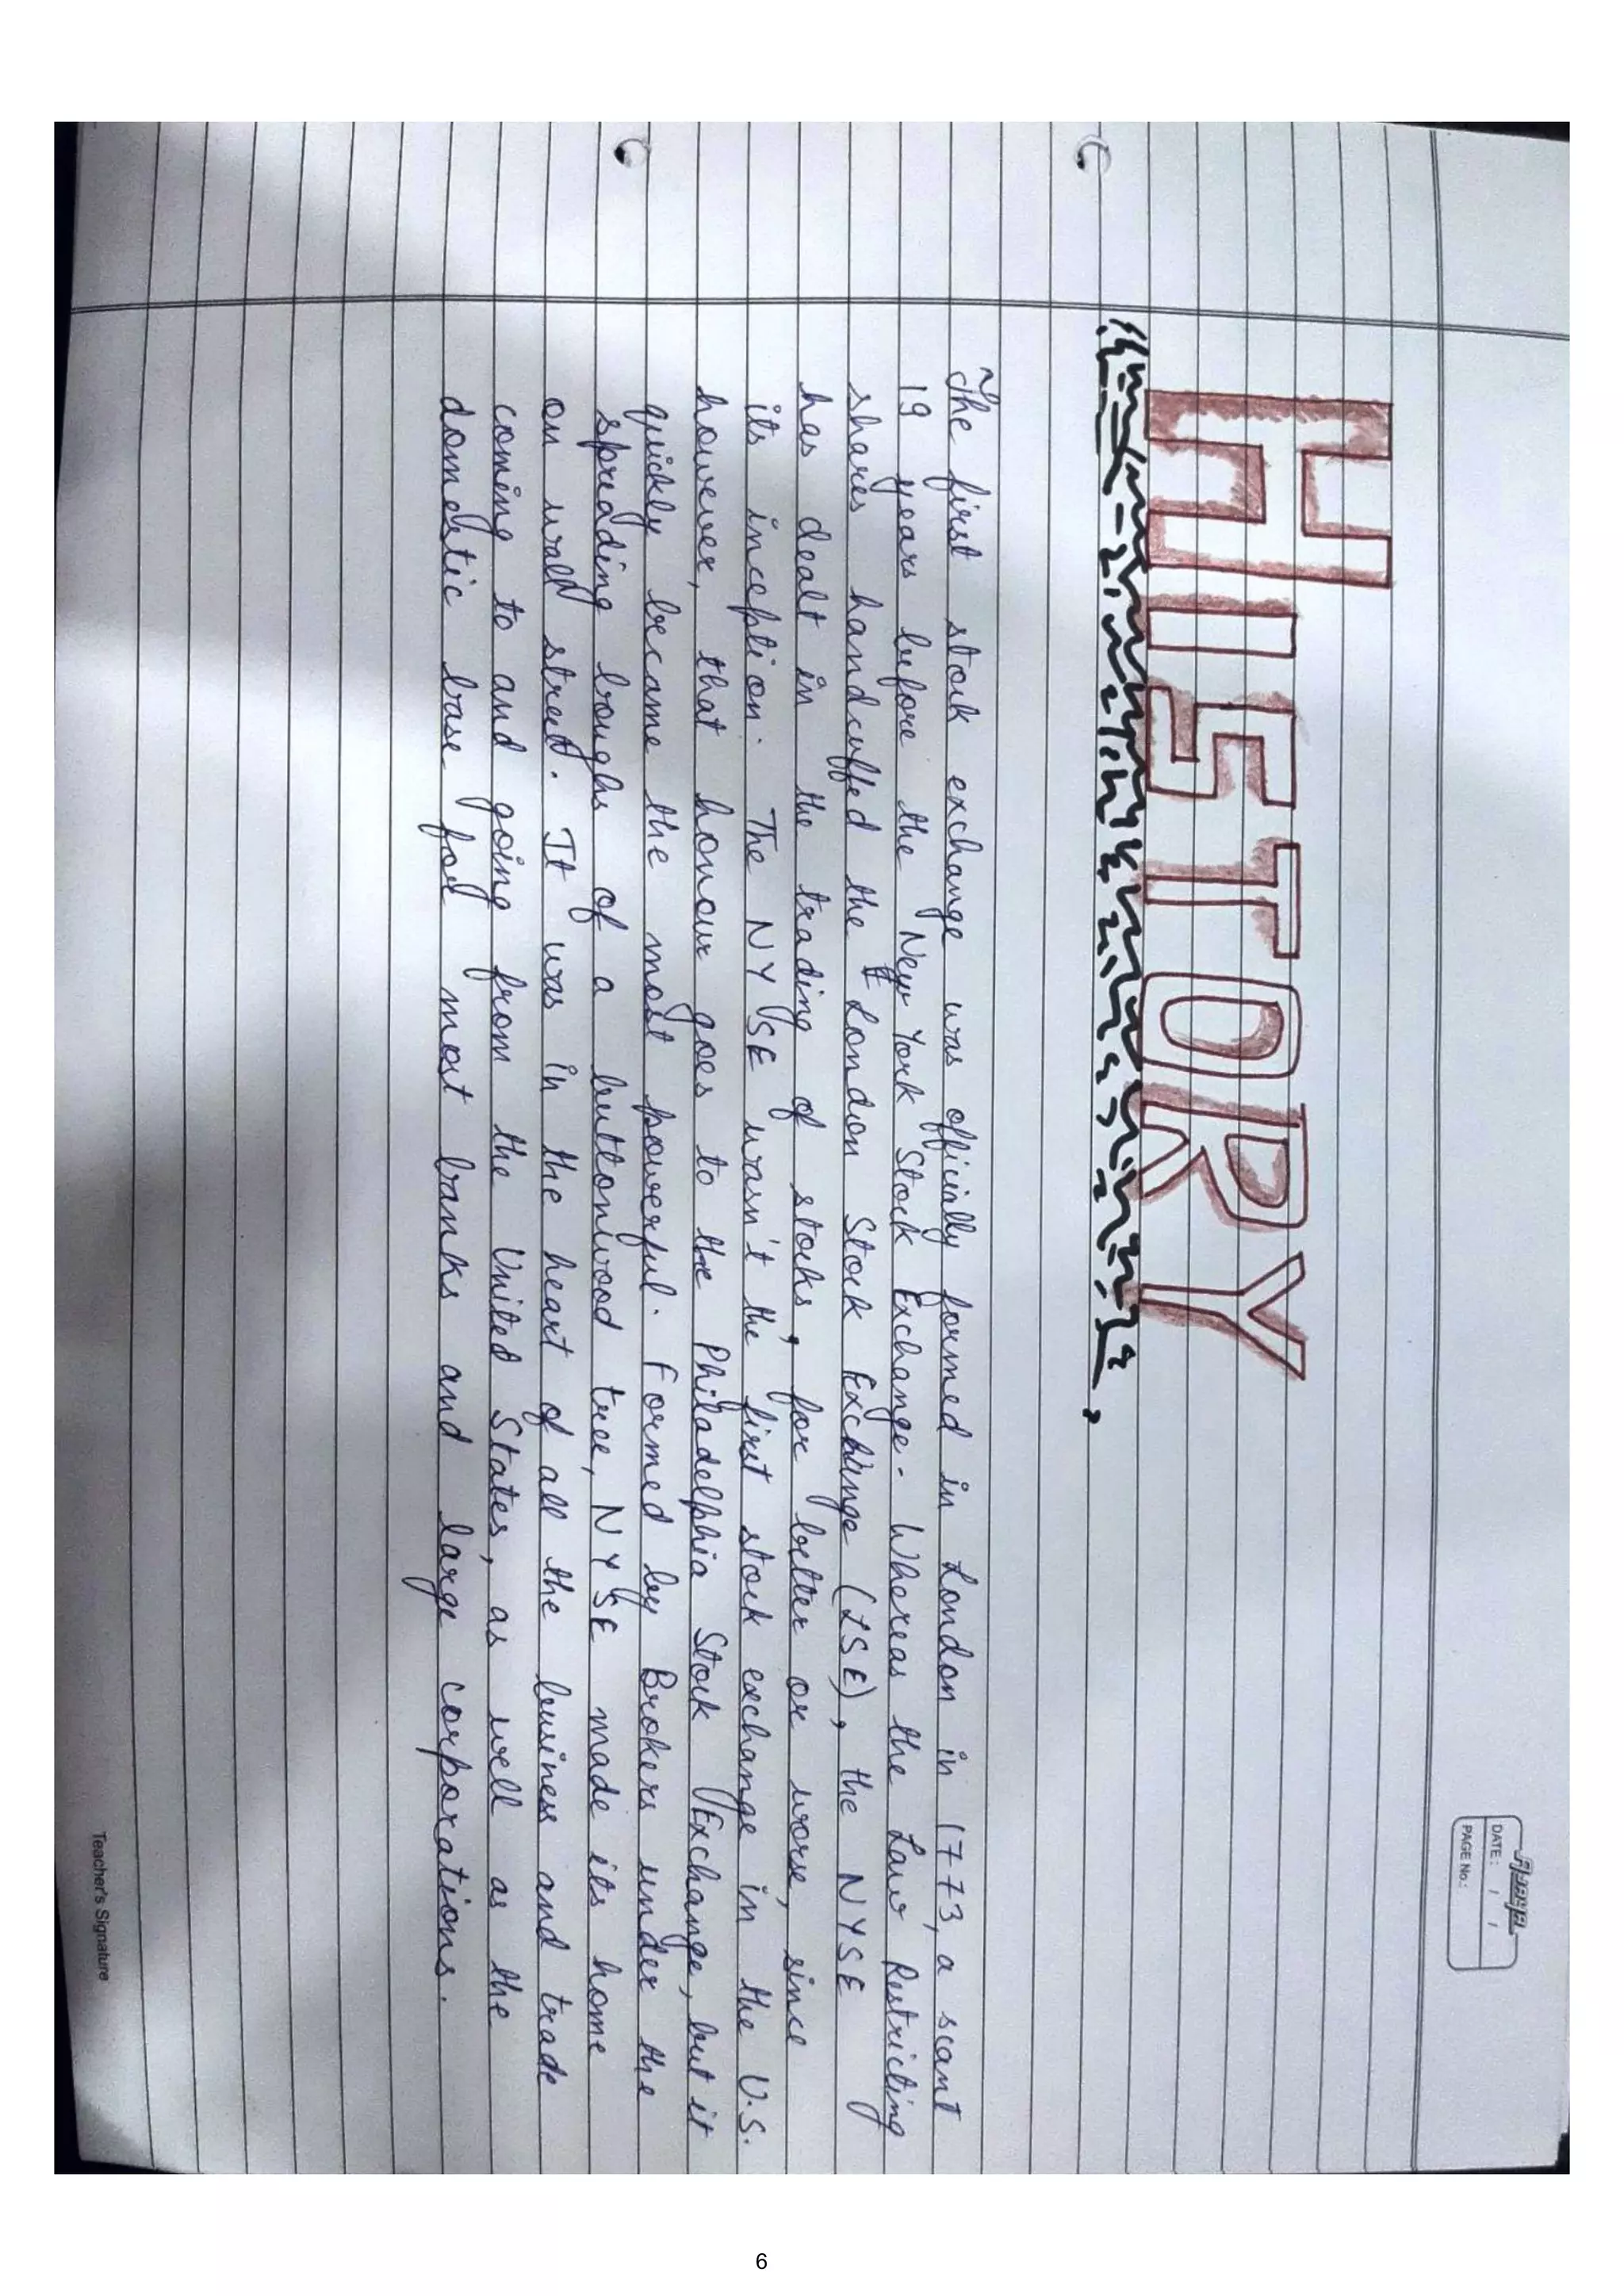 DATE: / /
PAGE No.:
HISTORY
The first stock exchange was officially formed in London in 1773, a scant
19 years before the New York Stock Exchange. Whereas the Law Restricting
shares handcuffed the London Stock Exchange (LSE), the NYSE
has dealt in the trading of stocks, for better or worse, since
its inception. The NYSE wasn't the first stock exchange in the U.S.
however, that honour goes to the Philadelphia Stock Exchange, but it
quickly became the most powerful. Formed by Brokers under the
spreading boughs of a buttonwood tree, NYSE made its home
on wall street. It was in the heart of all the business and trade
coming to and going from the United States, as well as the
domestic base for most banks and large corporations.
Teacher's Signature
6